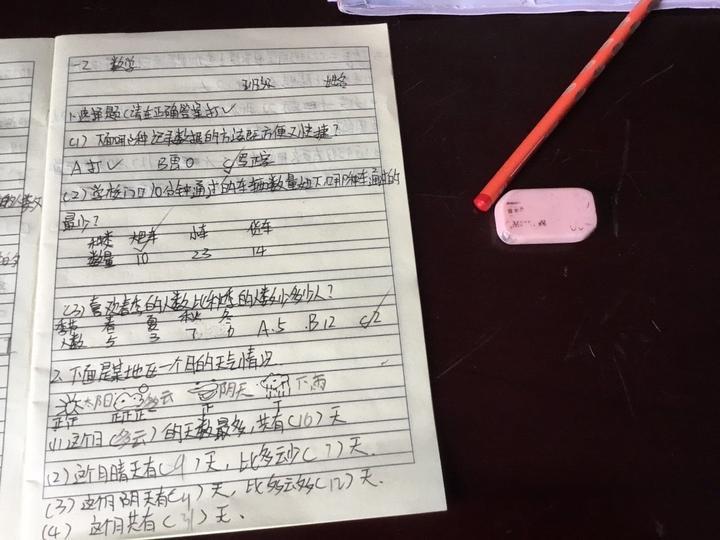 一2 数学
班级 姓名
1.选择题(请在正确答案打√
(1)下面哪种记录数据的方法既方便又快捷?
A打√ B画O C写正字
(2)学校门口10分钟通过的车辆数量如下,哪种车通过的
最少?
种类 大巴车 小车 货车
数量 10 23 14
(3)喜欢春季的人数比秋季的人数少多少人?
季节 春 夏 秋 冬
人数 5 3 7 6 A.5 .B12 C2
2.下面是某地在一个月的天气情况
太阳 多云 阴天 下雨
正 正正正 正
(1)这个月(多云)的天数最多,共有(16)天
(2)这个月晴天有(9)天,比多云少(7)天.
(3)这个月阴天有(4)天,比多云多(12)天.
(4) 这个月共有(31)天.